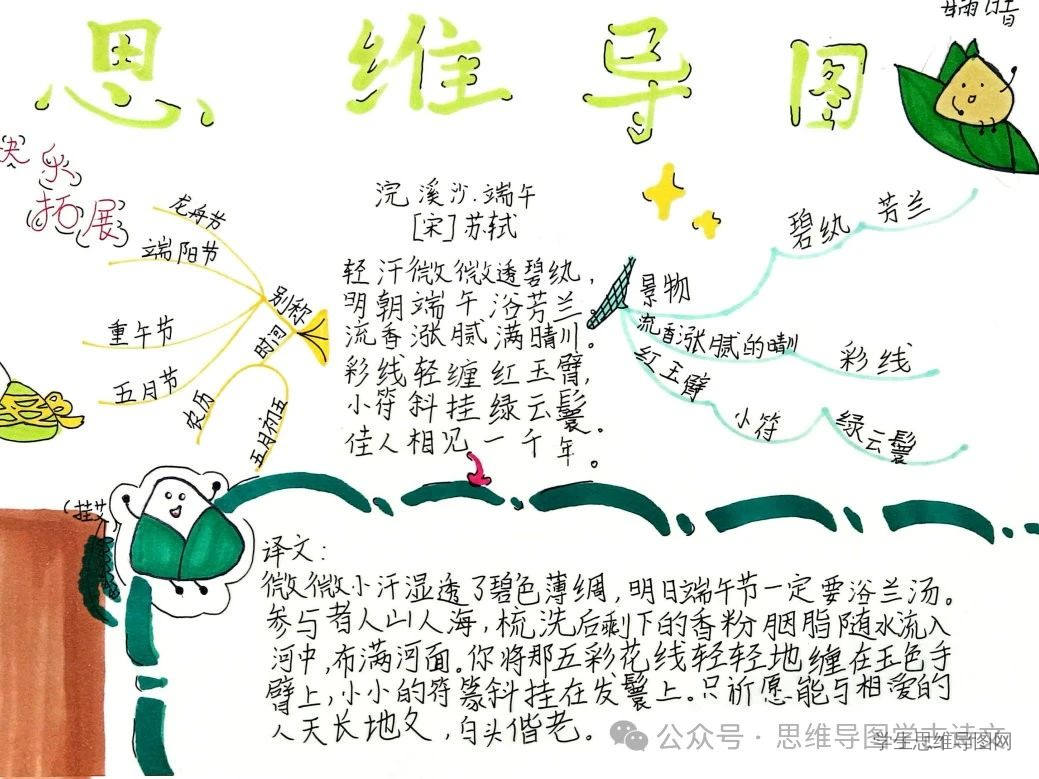 思维导图
快乐
拓展
龙舟节
端阳节
重午节
五月节
别称
时间
农历
五月初五
浣溪沙·端午
[宋]苏轼
轻汗微微透碧纨，
明朝端午浴芳兰。
流香涨腻满晴川。
彩线轻缠红玉臂，
小符斜挂绿云鬟。
佳人相见一千年。
景物
碧纨
芳兰
流香涨腻的晴川
彩线
红玉臂
小符
绿云鬟
译文：
微微小汗湿透了碧色薄绸，明日端午节一定要浴兰汤。
参与者人山人海，梳洗后剩下的香粉胭脂随水流入
河中，布满河面。你将那五彩花线轻轻地缠在玉色手
臂上，小小的符篆斜挂在发鬟上。只祈愿能与相爱的
人天长地久，白头偕老。
公众号·思维导图学古诗文
学生思维导图网